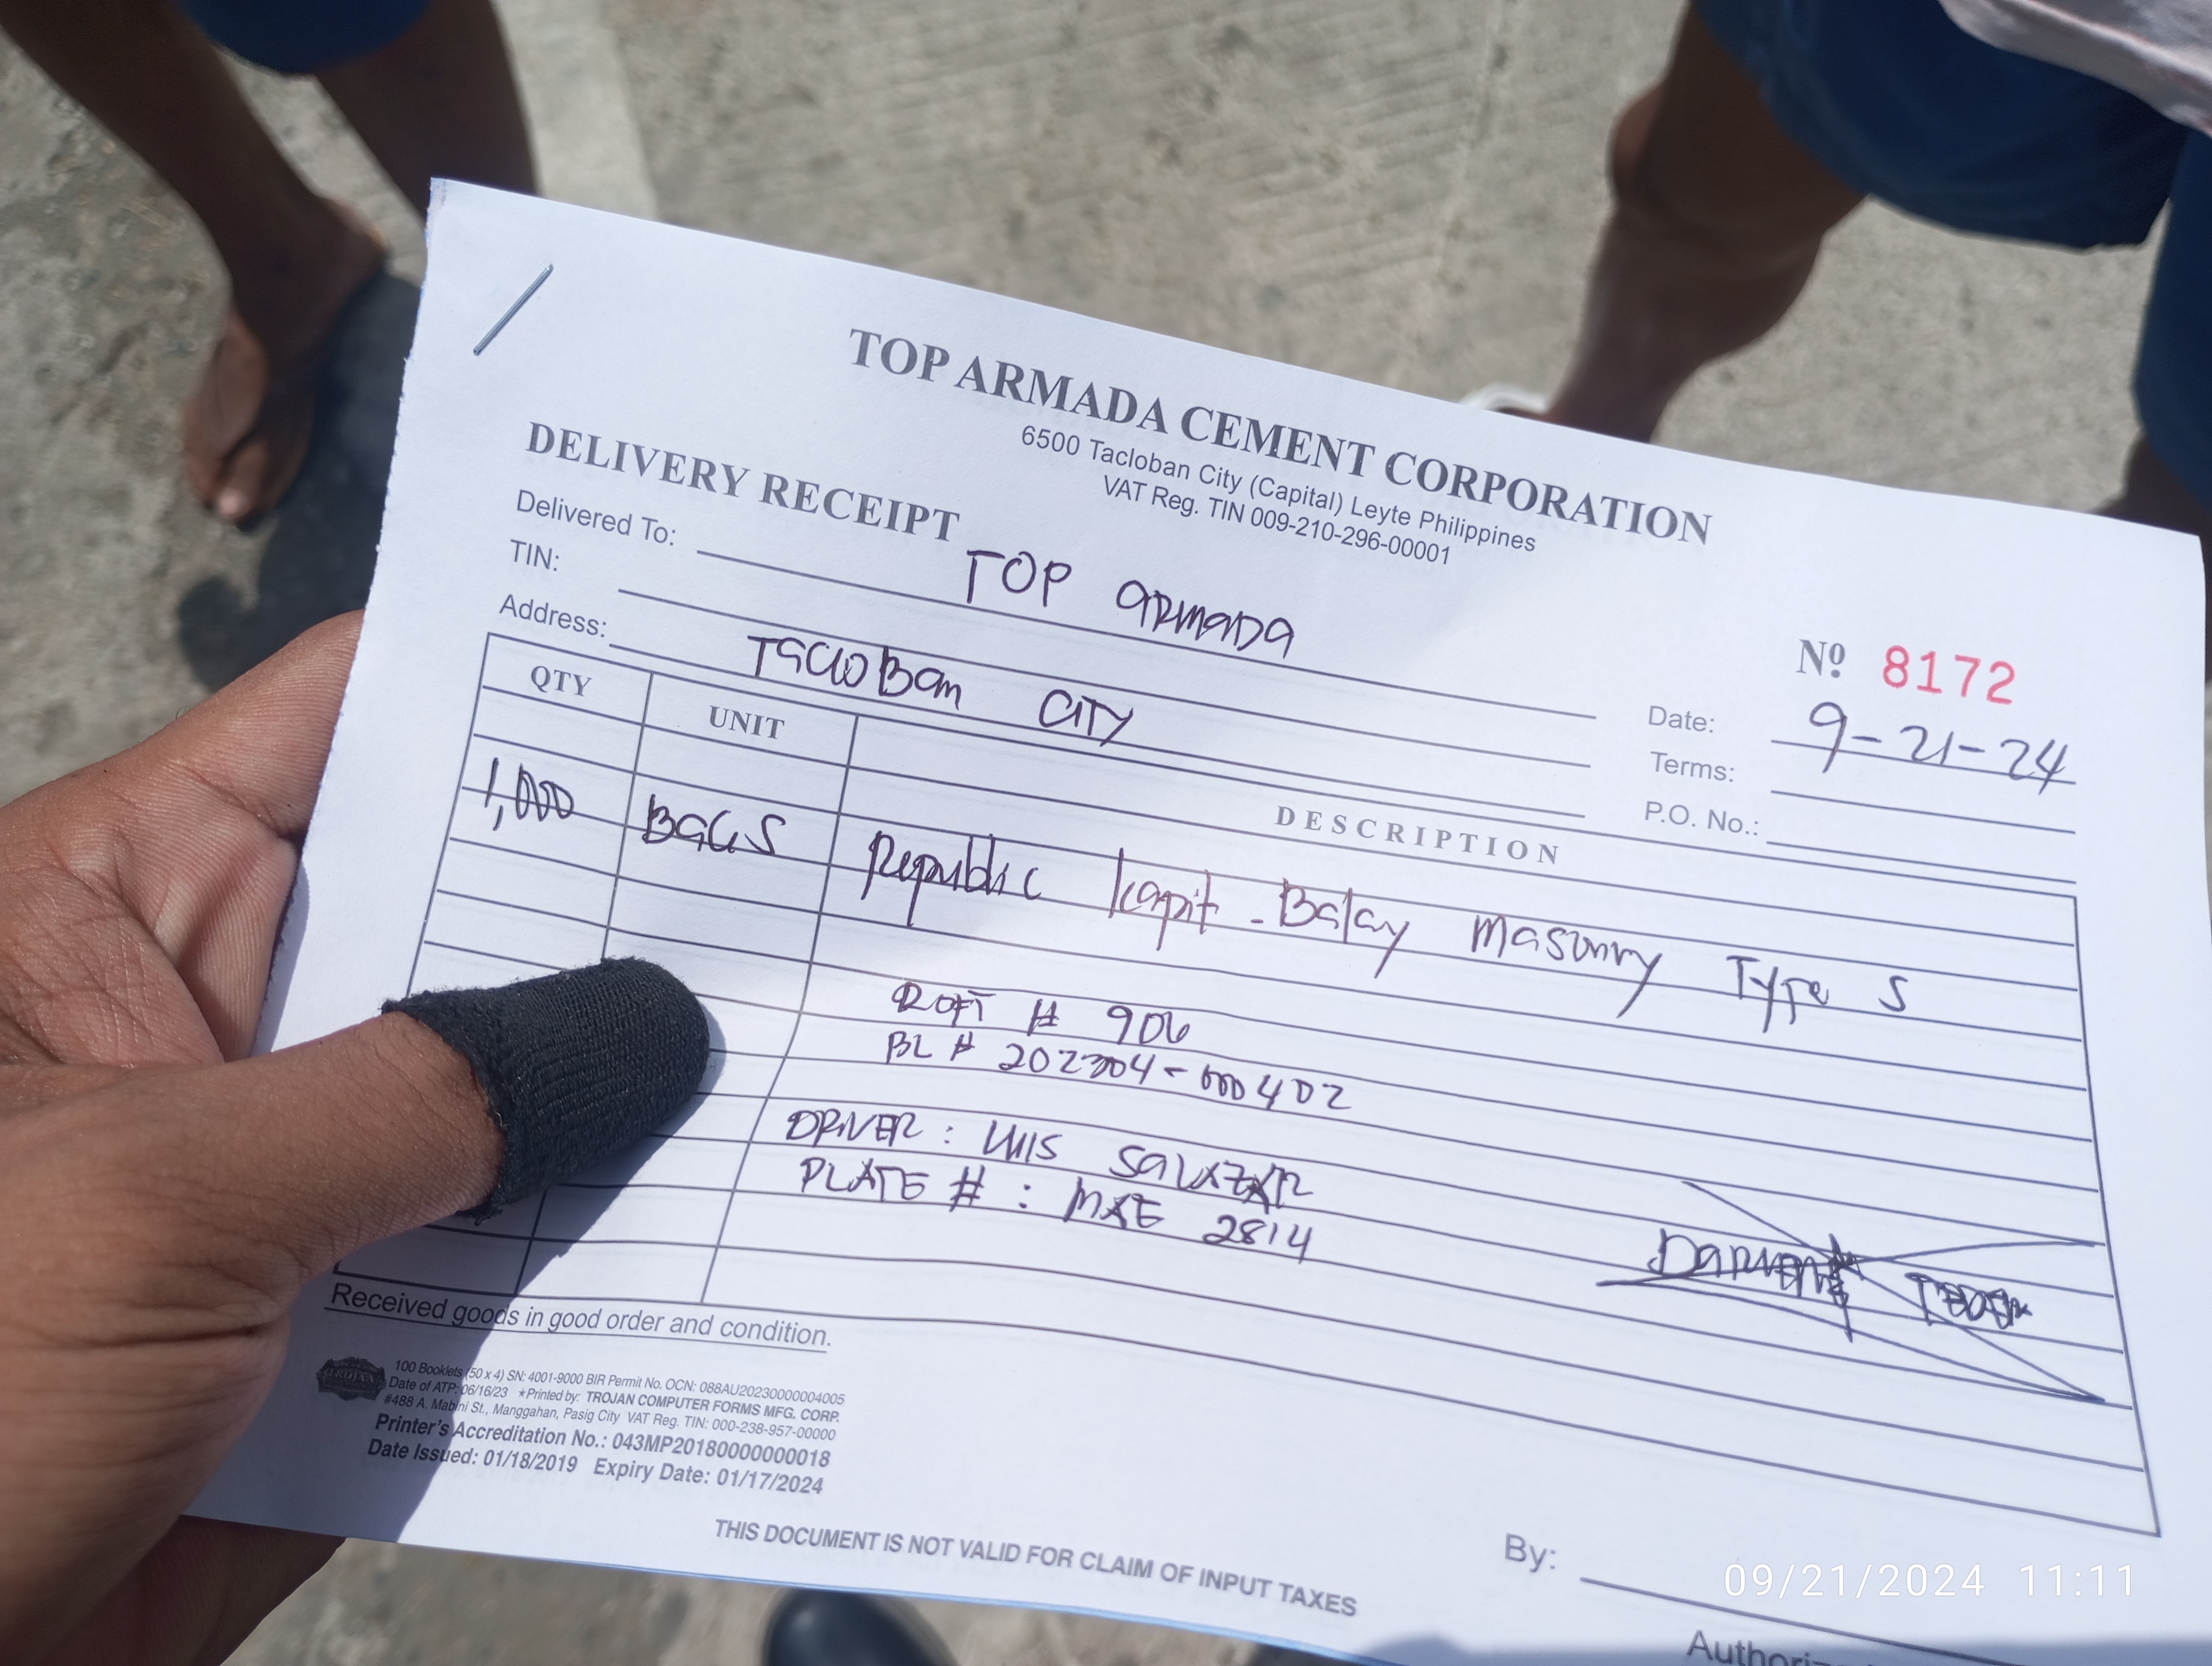 TOP ARMADA CEMENT CORPORATION
6500 Tacloban City (Capital) Leyte Philippines
VAT Reg. TIN 009-210-296-00001
DELIVERY RECEIPT
Nº 8172
Delivered To: TOP ARMADA
Date: 9-21-24
TIN:
Terms:
Address: TACLOBAN CITY
P.O. No.:
QTY UNIT DESCRIPTION
1,000 BAGS Republic kapit-Balay Masonry Type S
# 906
BL # 202304-000402
DRIVER: LUIS SALAZAR
PLATE #: MAE 2814
Received goods in good order and condition.
TROJAN
100 Booklets (50 x 4) SN: 4001-9000 BIR Permit No. OCN: 088AU20230000004005
Date of ATP: 06/16/23 *Printed by: TROJAN COMPUTER FORMS MFG. CORP.
#488 A. Mabini St., Manggahan, Pasig City VAT Reg. TIN: 000-238-957-00000
Printer's Accreditation No.: 043MP20180000000018
Date Issued: 01/18/2019 Expiry Date: 01/17/2024
THIS DOCUMENT IS NOT VALID FOR CLAIM OF INPUT TAXES
By:
09/21/2024 11:11